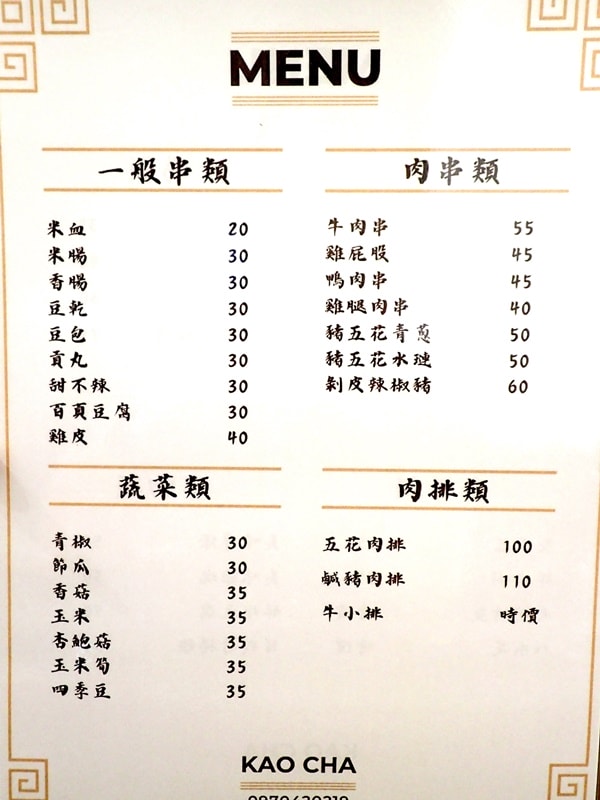 MENU
一般串類
米血 20
米腸 30
香腸 30
豆乾 30
豆包 30
貢丸 30
甜不辣 30
百頁豆腐 30
雞皮 40
肉串類
牛肉串 55
雞屁股 45
鴨肉串 45
雞腿肉串 40
豬五花青蔥 50
豬五花水蓮 50
剝皮辣椒豬 60
蔬菜類
青椒 30
節瓜 30
香菇 35
玉米 35
杏鮑菇 35
玉米筍 35
四季豆 35
肉排類
五花肉排 100
鹹豬肉排 110
牛小排 時價
KAO CHA